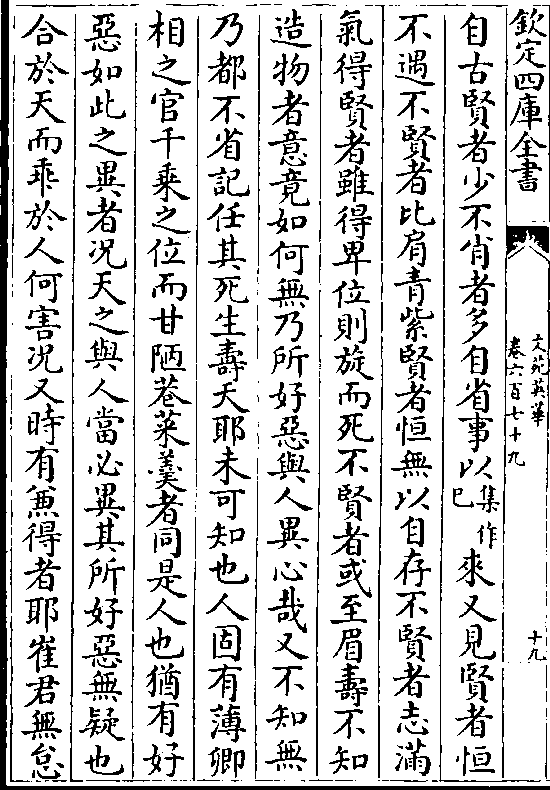 欽定四庫全書
文苑英華
卷六百七十九
十九
自古賢者少不肖者多自省事以集作已來又見賢者恒
不遇不賢者比肩青紫賢者恒無以自存不賢者志滿
氣得賢者雖得卑位則旋而死不賢者或至眉壽不知
造物者意竟如何無乃所好惡與人異心哉又不知無
乃都不省記任其死生壽夭耶未可知也人固有薄卿
相之官千乘之位而甘陋巷菜羹者同是人也猶有好
惡如此之異者况天之與人當必異其所好惡無疑也
合於天而乖於人何害况又時有兼得者耶崔君無怠